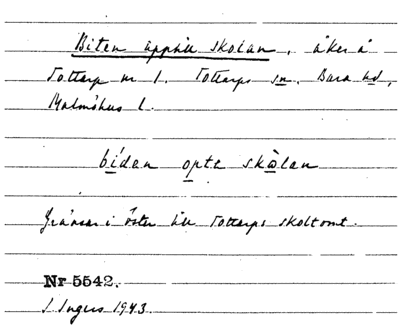 Biten uppåt skolan, åker å
Tottarp nr 1. Tottarps sn., Bara hd,
Malmöhus l.
bídan opta skålan
Gränsar i öster till Tottarps skoltomt.
Nr 5542.
I. Ingers 1943.